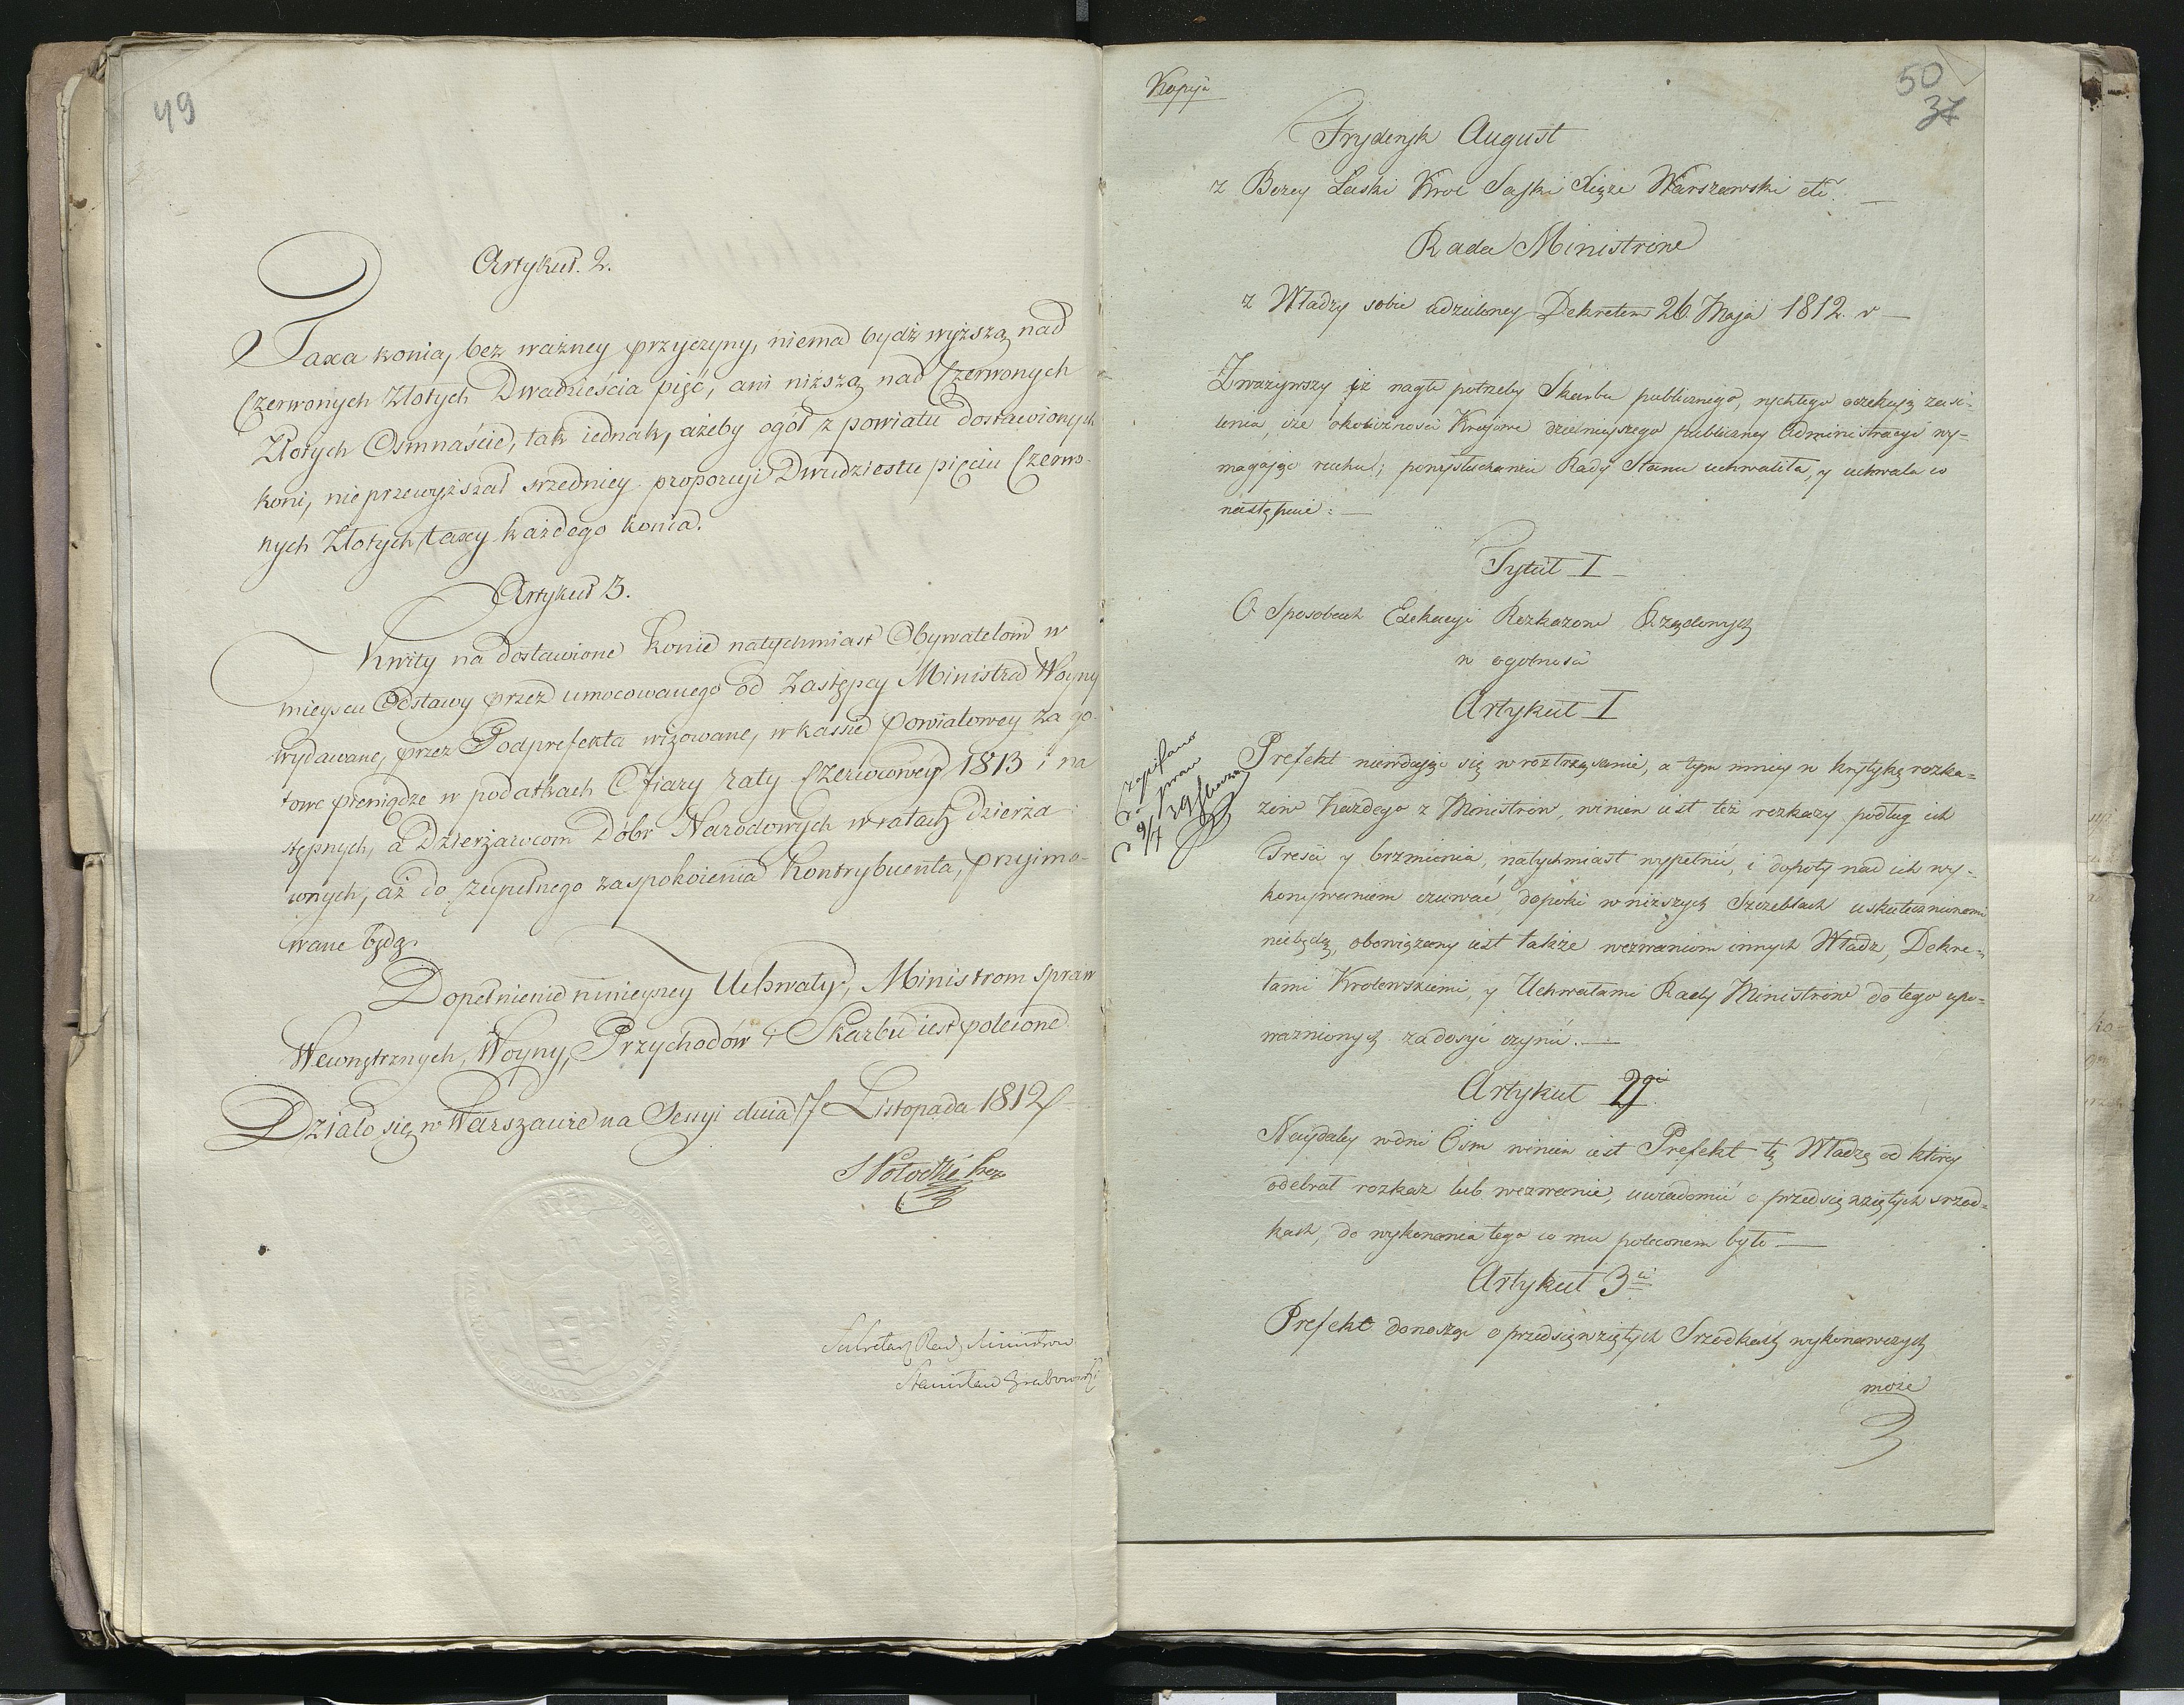 49
Artykuł. 2.
Taxa konia, bez ważney przyczyny, niema bydź wyższą nad
Czerwonych Złotych Dwadzieścia pięć, ani niższą nad Czerwonych
Złotych Osmnaście, tak iednak, ażeby ogół z powiatu dostawionych
koni, nie przewyższał srzedniey proporcyi Dwudziestu pięciu Czerwo-
nych Złotych taxy każdego konia.
Artykuł 3.
Kwity na dostawione konie natychmiast Obywatelom w
mieyscu Odstawy przez umocowanego od Zastępcy Ministra Woyny
wydawane, przez Podprefekta wizowane, w kassie powiatowey za go-
towe pieniądze w podatkach Ofiary raty Czerwcowey 1813 i na
stępnych, a Dzierżawcom Dóbr Narodowych w ratach dzierża
wnych, aż do zupełnego zaspokoienia Kontrybuenta, przyimo-
wane będą.
Dopełnienie ninieyszey Uchwały, Ministrom spraw
Wewnętrznych, Woyny, Przychodów i Skarbu iest polecone.
Działo się w Warszawie na Sessyi dnia 17 Listopada 1812 r
S Potocki Prez
Sekretarz Rady Ministrow
Stanisław Grabowski
Kopija
50
37
Fryderyk August
z Bozey Łaski Krol Saski Xiąże Warszawski etc.
Rada Ministrow
z Władzy sobie udzieloney Dekretem 26 Maja 1812. r
Zważywszy iż nagłe potrzeby Skarbu publicznego, rychłego oczekują zasi-
lenia, iże okoliczności Kraiowe dzielnieyszego publiczney Administracyi wy-
magaią ruchu; po wysłuchaniu Rady Stanu uchwaliła, y uchwala co
następuie:
Tytuł I
O Sposobach Exekucyi Rozkazow Rządowych
w ogolnosci
Artykuł I
Zapisano
do spraw
Prefekt niewdaiąc się w roztrząsanie, a tym mniey w krytykę rozka-
zow każdego z Ministrow, winien iest też rozkazy podług ich
Tresci y brzmienia, natychmiast wypełnić, i dopoty nad ich wy-
konywaniem czuwać, dopoki w niższych Szczeblach uskutecznionemi
niebędą, obowiązany iest także wezwaniom innych Władz, Dekre-
tami Krolewskiemi, y Uchwałami Rady Ministrow do tego upo-
ważnionych zadosyć czynić.
Artykuł 2gi
Naydaley w dni Osm winien iest Prefekt tę Władzę od ktorey
odebrał rozkaz lub wezwanie, uwiadomić o przedsięwziętych srzod-
kach, do wykonania tego co mu poleconem było
Artykuł 3ci
Prefekt donosząc o przedsięwziętych Srzodkach wykonawczych
może